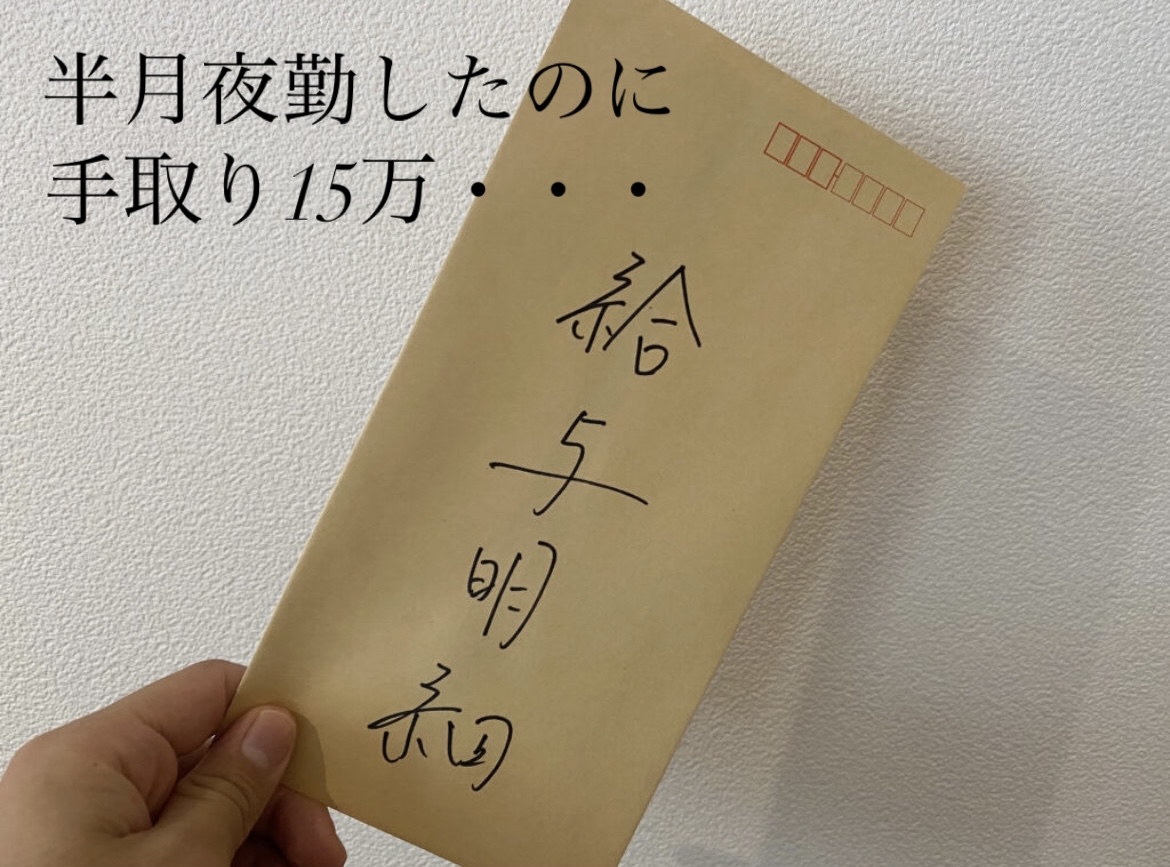 半月夜勤したのに
手取り15万・・・
給与明細